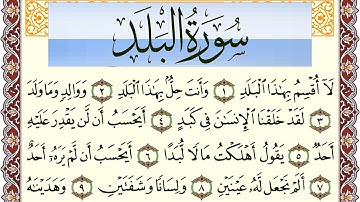 سُورَةُ البَلَدِ
لَآ أُقْسِمُ بِهَٰذَا ٱلْبَلَدِ ١ وَأَنتَ حِلٌّۢ بِهَٰذَا ٱلْبَلَدِ ٢ وَوَالِدٍ وَمَا وَلَدَ
٣ لَقَدْ خَلَقْنَا ٱلْإِنسَٰنَ فِى كَبَدٍ ٤ أَيَحْسَبُ أَن لَّن يَقْدِرَ عَلَيْهِ
أَحَدٌ ٥ يَقُولُ أَهْلَكْتُ مَالًا لُّبَدًا ٦ أَيَحْسَبُ أَن لَّمْ يَرَهُۥٓ أَحَدٌ
٧ أَلَمْ نَجْعَل لَّهُۥ عَيْنَيْنِ ٨ وَلِسَانًا وَشَفَتَيْنِ ٩ وَهَدَيْنَٰهُ